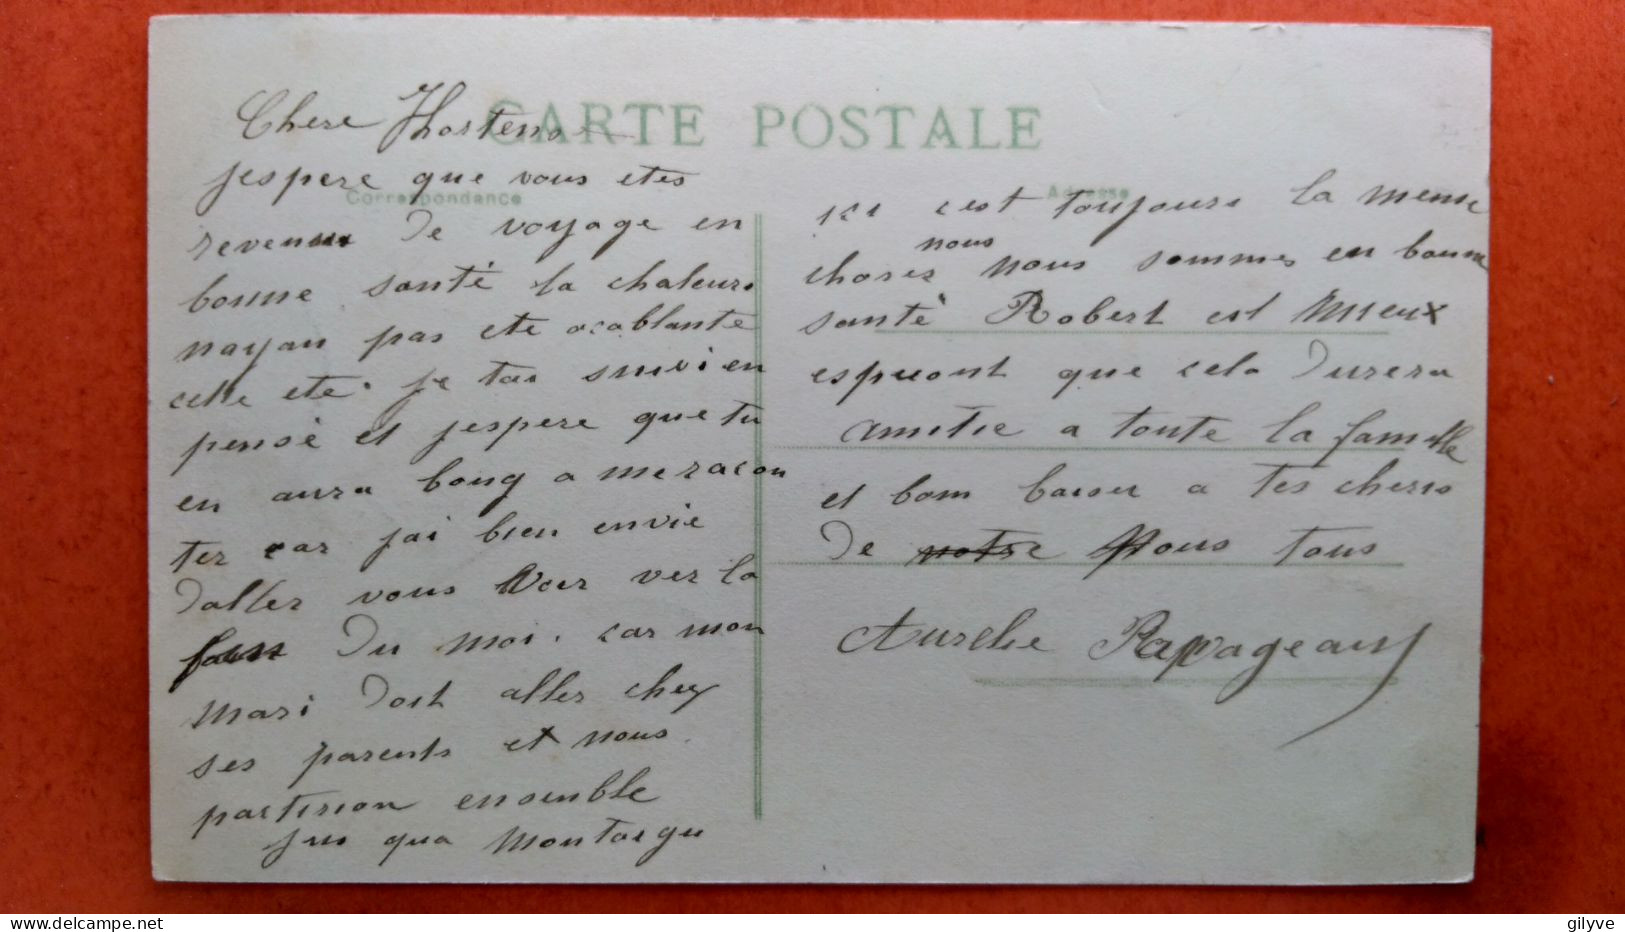 CARTE POSTALE
Correspondance
Adresse
Chere Hortens
jespere que vous etes
revenu de voyage en
bonne santé la chaleur
nayan pas ete acablante
cette eté. je tai suivi en
pensé et jespere que tu
en aura long a me racon
ter car jai bien envie
daller vous voir ver la
du moi. car mon
mari doit aller chez
ses parents et nous
partirion ensemble
jus qua Montargu
ici cest toujours la meme
nous
choses nous sommes en bonne
santé Robert est Mieux
esperont que cela durera
amitie a toute la famille
et bom baiser a tes cheris
de notre Nous tous
Aurelie Papageau
gilyve